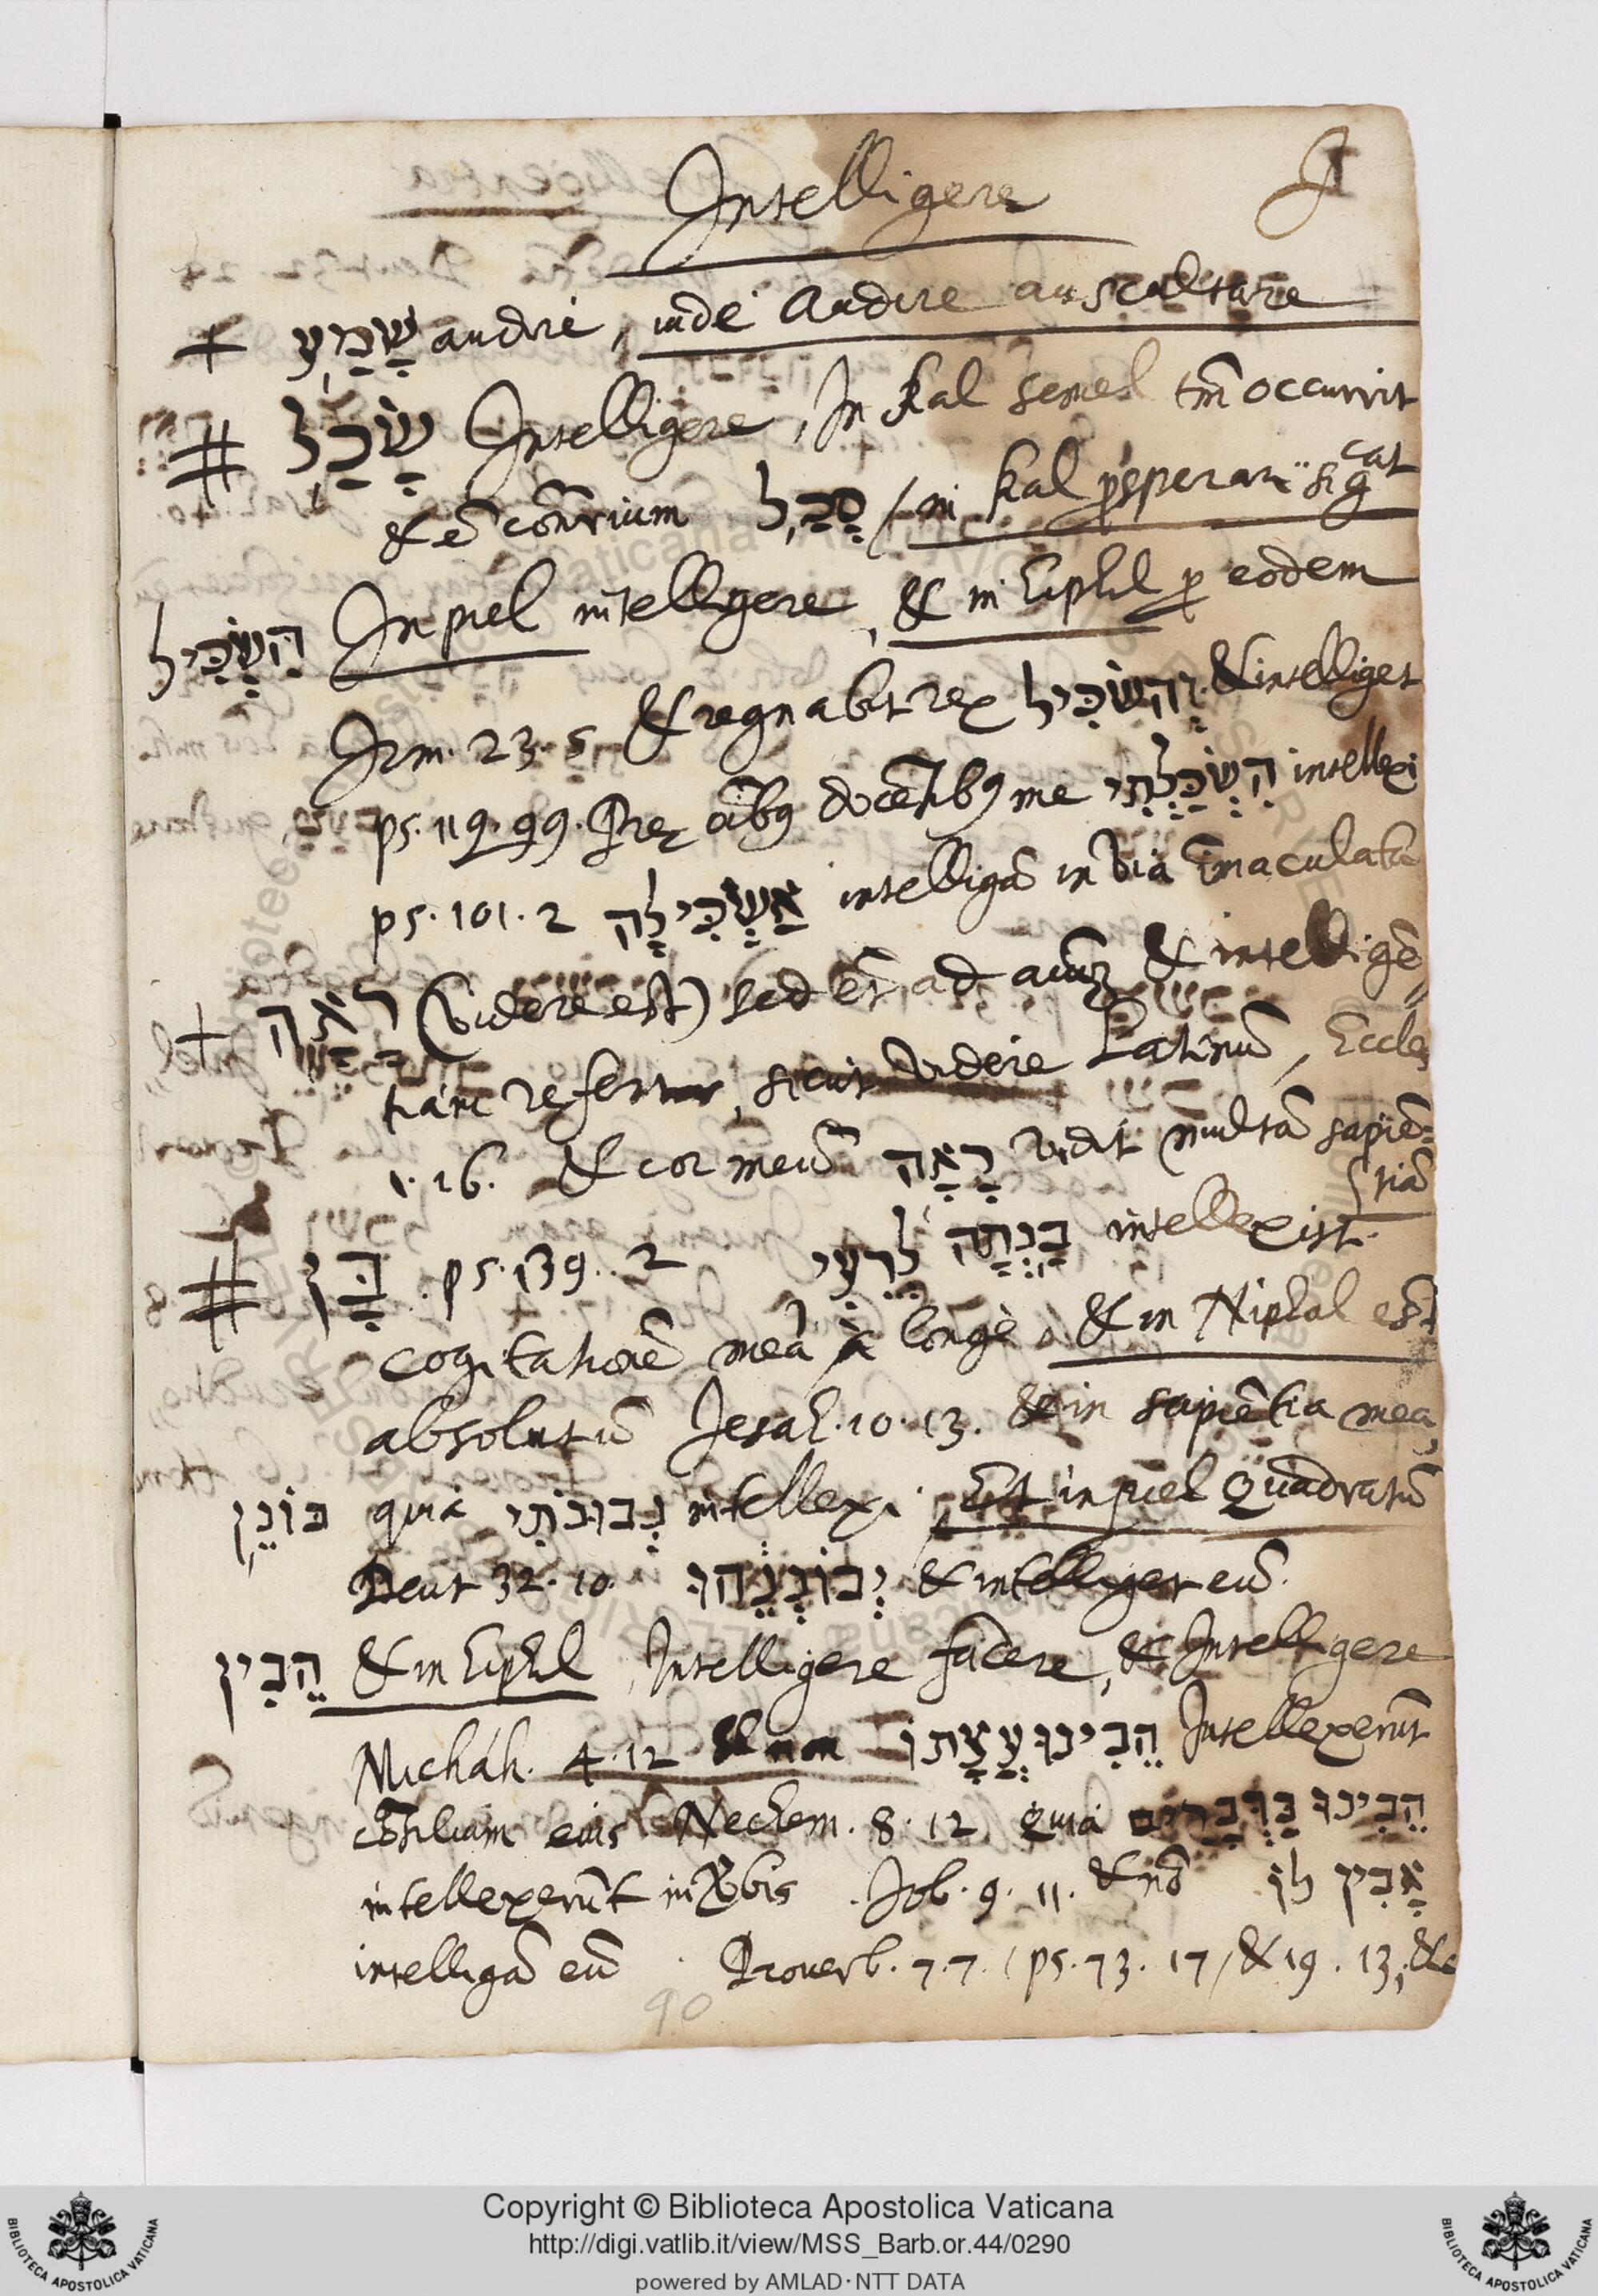 Intelligere
J
+ שָׁמַע audire, vide Audire auscultare
# שָׂכַל Intelligere, In Kal semel tm̄ occurrit
& ē cōn̄rium סָכַל / in Kal p̱sperari sigcat
הִשְׂכִּיל In piel intelligere, & in hiphil p̱ eodem
Jrm. 23. 5 & regnabit rex וְהִשְׂכִּיל & intelliget
ps. 119. 99. Prę oīb9 docētib9 me הִשְׂכַּלְתִּי intellexi
ps. 101. 2 אַשְׂכִּילָה intelligā in via īmaculatā
+ רָאָה (videre est) sed et ad & intelligē„
tiam refertur, sicut videre Latinū, Eccles
1. 16. & cor meū רָאָה vidit multā sapiē=
tiā
# בָּן . ps. 139. 2 בַּנְתָּה לְרֵעִי intellexisti
cogitationē meā à longè & in Niphal est
absolutū Jesah. 10. 13. & in sapiētia mea
בּוֹנֵן quia נְבוּנֹתִי intellexi. Est in piel Quadratū
Deut 32. 10. יְבוֹנְנֵהוּ & intelliget eū.
הֵבִין & in hiphil, Intelligere facere, & Intelligere
Micháh. 4. 12 & non הֵבִינוּ עֲצָתוֹ Intellexerūt
cōsilium eius Nechem. 8. 12 quia הֵבִינוּ בַּדְּבָרִים
intellexerūt in v̄bis . Job. 9. 11. & nō אָבִין לוֹ
intelligā eū . Prouerb. 7. 7. / ps. 73. 17 / & 19. 13; &c
90
Copyright © Biblioteca Apostolica Vaticana
http://digi.vatlib.it/view/MSS_Barb.or.44/0290
powered by AMLAD·NTT DATA
BIBLIOTECA APOSTOLICA VATICANA
BIBLIOTECA APOSTOLICA VATICANA